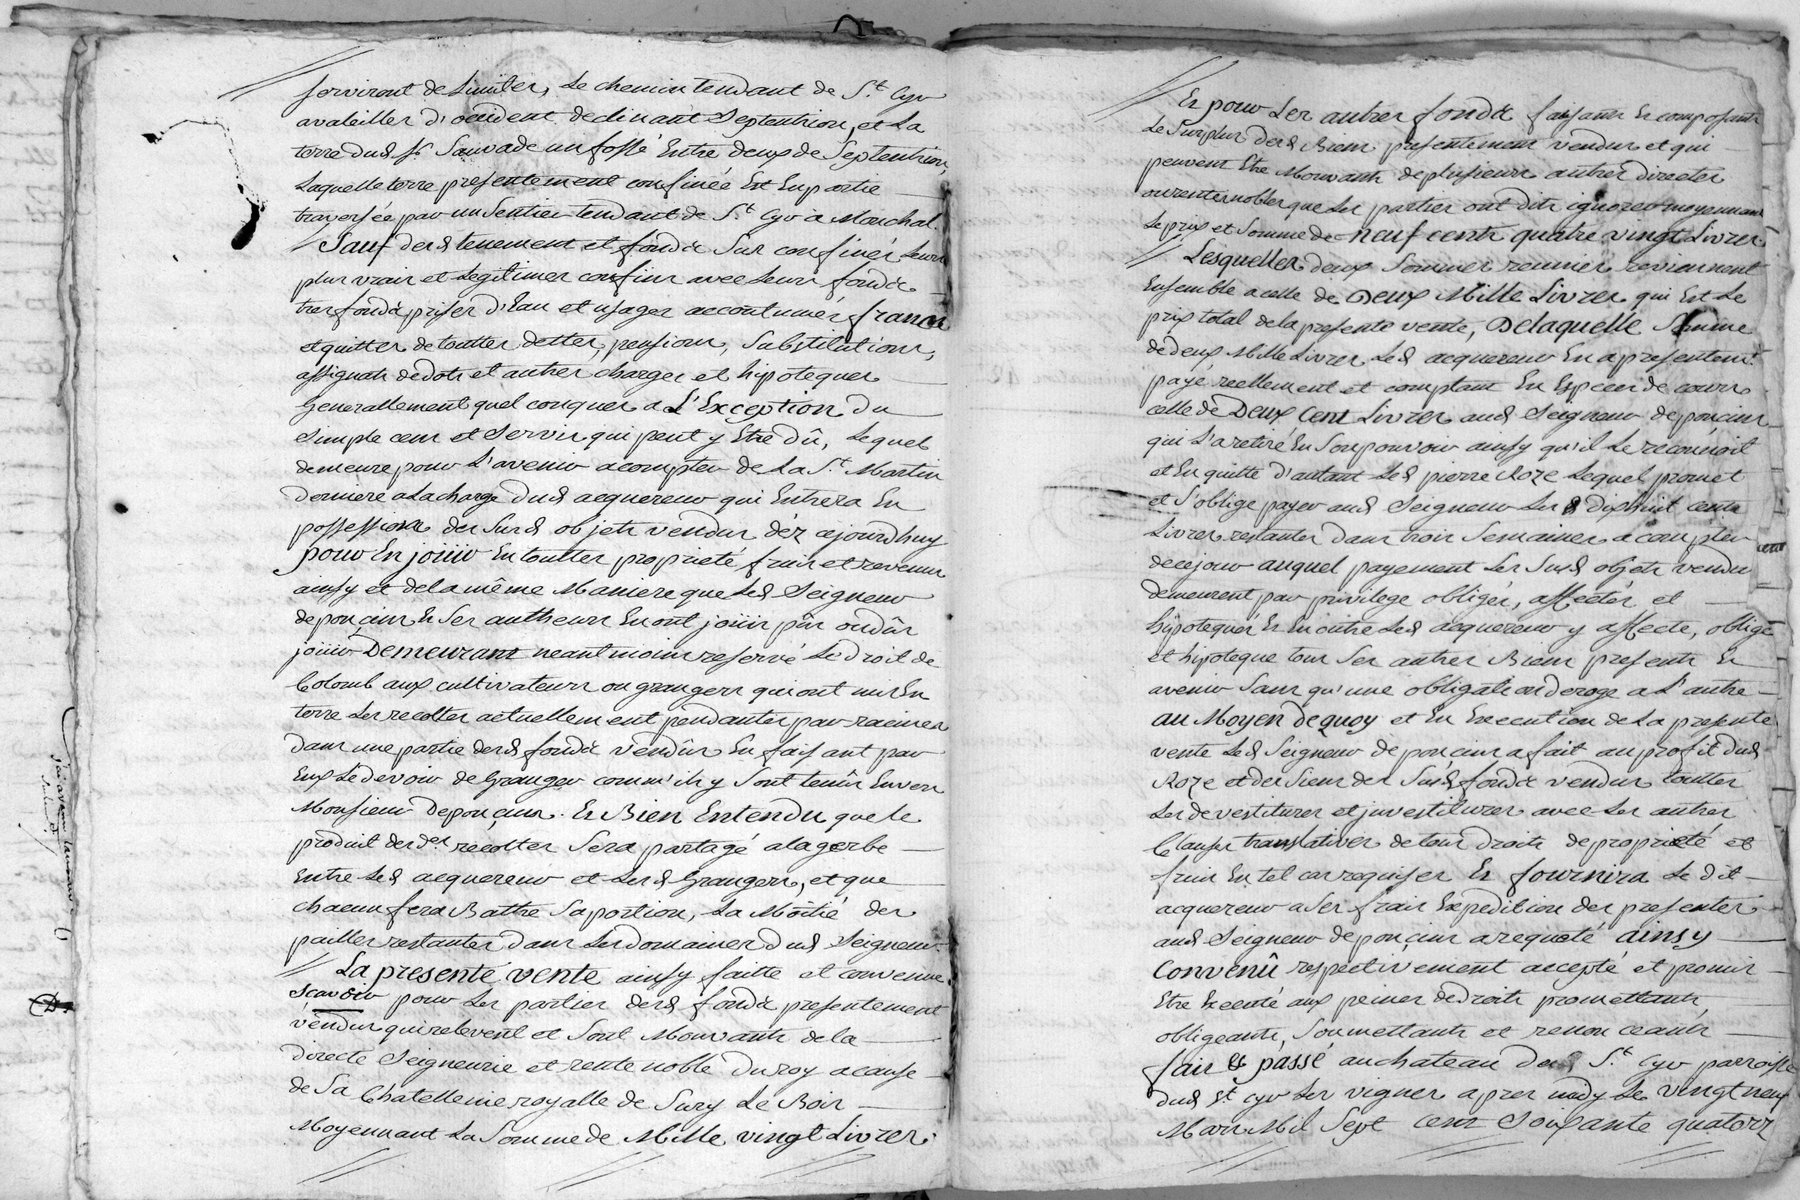 serviront de Limittes, Le chemin tendant de S.t Cyr
avaleilles d'occident declinant Septentrion, et La
terre dud. sr Sauvade un fossé Entre deux de Septentrion,
Laquelle terre presentement confinée Est En partie
traversée par un Sentier tendant de S.t Cyr a Marchal.
Sauf desd. tenement et fonds Sus confinés Leurs
plus vrais et Legitimes confins avec Leurs fonds
tres fonds prises d'Eau et usages accoutumés francs
et quittes de touttes dettes, pensions, Substitutions,
assignats de dots et autres charges et hipoteques
Generallement quelconques a L'Exception du
Simple cens et Servis qui peut y Etre dû, Lequel
demeure pour L'avenir a compter de La S.t Martin
derniere a La charge dud. acquereur qui Entrera En
possession des Susd. objets vendus déz ajourdhuy
pour En jouir En touttes proprieté fruis et revenus
ainsy et de la même Maniere que Led. Seigneur
de ponçins & Ses autheurs En ont joüis pûs ou dûs
joüir Demeurant neantmoins reservé Le droit de
Colomb aux cultivateurs ou grangers qui ont mis En
terre Les recoltes actuellement pendantes par racines
dans une partie desd. fonds vendûs En faisant par
Eux Le devoir de Granger comm'ils y Sont tenûs Envers
Monsieur De ponçins. Et Bien Entendu que Le
produit des d.es récoltes Sera partagé a la gerbe
Entre Led. acquereur et Lesd. Grangers, et que
chacun fera Battre Sa portion, La Môitié des
pailles restantes dans Les domaines dud. Seigneur.
La presente vente ainsy faitte et convenue
Scavoir pour Les parties desd. fonds presentement
vendus qui relevent et Sont Mouvants de la
directe Seigneurie et rente noble du roy a cause
de Sa Chatellenie royalle de Sury Le Bois
Moyennant La Somme de Mille vingt Livres.
Et pour Les autres fonds faisants Et composants
Le Surplus desd. Biens presentement vendus et qui
peuvent Etre Mouvants de plusieurs autres directes
ou rentes nobles que Les parties ont dits ignorer moyennant
Le prix et Somme de neuf cents quatre vingt Livres.
Lesquelles deux Sommes reunies reviennent
Ensemble a celle de Deux Mille Livres qui Est Le
prix total de la presente vente, De laquelle Somme
de deux Mille Livres Led. acquereur En a presentem.t
payé reellement et comptant En Especes de cours
celle de Deux Cent Livres aud. Seigneur de ponçins
qui L'a retiré En Son pouvoir ainsy qu'il Le reconnoit
et En quitte d'autant Led. pierre Roze Lequel promet
et S'oblige payer aud. Seigneur Les dixhuit cents
Livres restantes dans trois Semaines a compter
de ce jour auquel payement Les Susd. objets vendus
demeurent par privilege obligés, affectés et
hipotequés Et En outre Led. acquereur y affecte, oblige
et hipoteque tous Ses autres Biens presents Et
avenir Sans qu'une obligation deroge a L'autre
au Moyen de quoy et En Execution de La presente
vente Led. Seigneur de ponçins a fait au profit dud.
Roze et des Siens des Susd. fonds vendus touttes
Les devestitures et jnvestitures avec Les autres
Clauses translatives de tous droits de proprieté et
fruis En tel cas requises Et fournira Le dit
acquereur a Ses frais Expedition des presentes
aud. Seigneur de ponçins a requeté ainsy
Convenû respectivement accepté et promis
Etre Executé aux peines de droits promettants
obligeants, Soumettants et renonceants
fait & passé au chateau dud. S.t Cyr parroisse
dud. S.t Cyr Les vignes apres midy Le vingt neuf
Mars Mil Sept cent Soixante quatorz